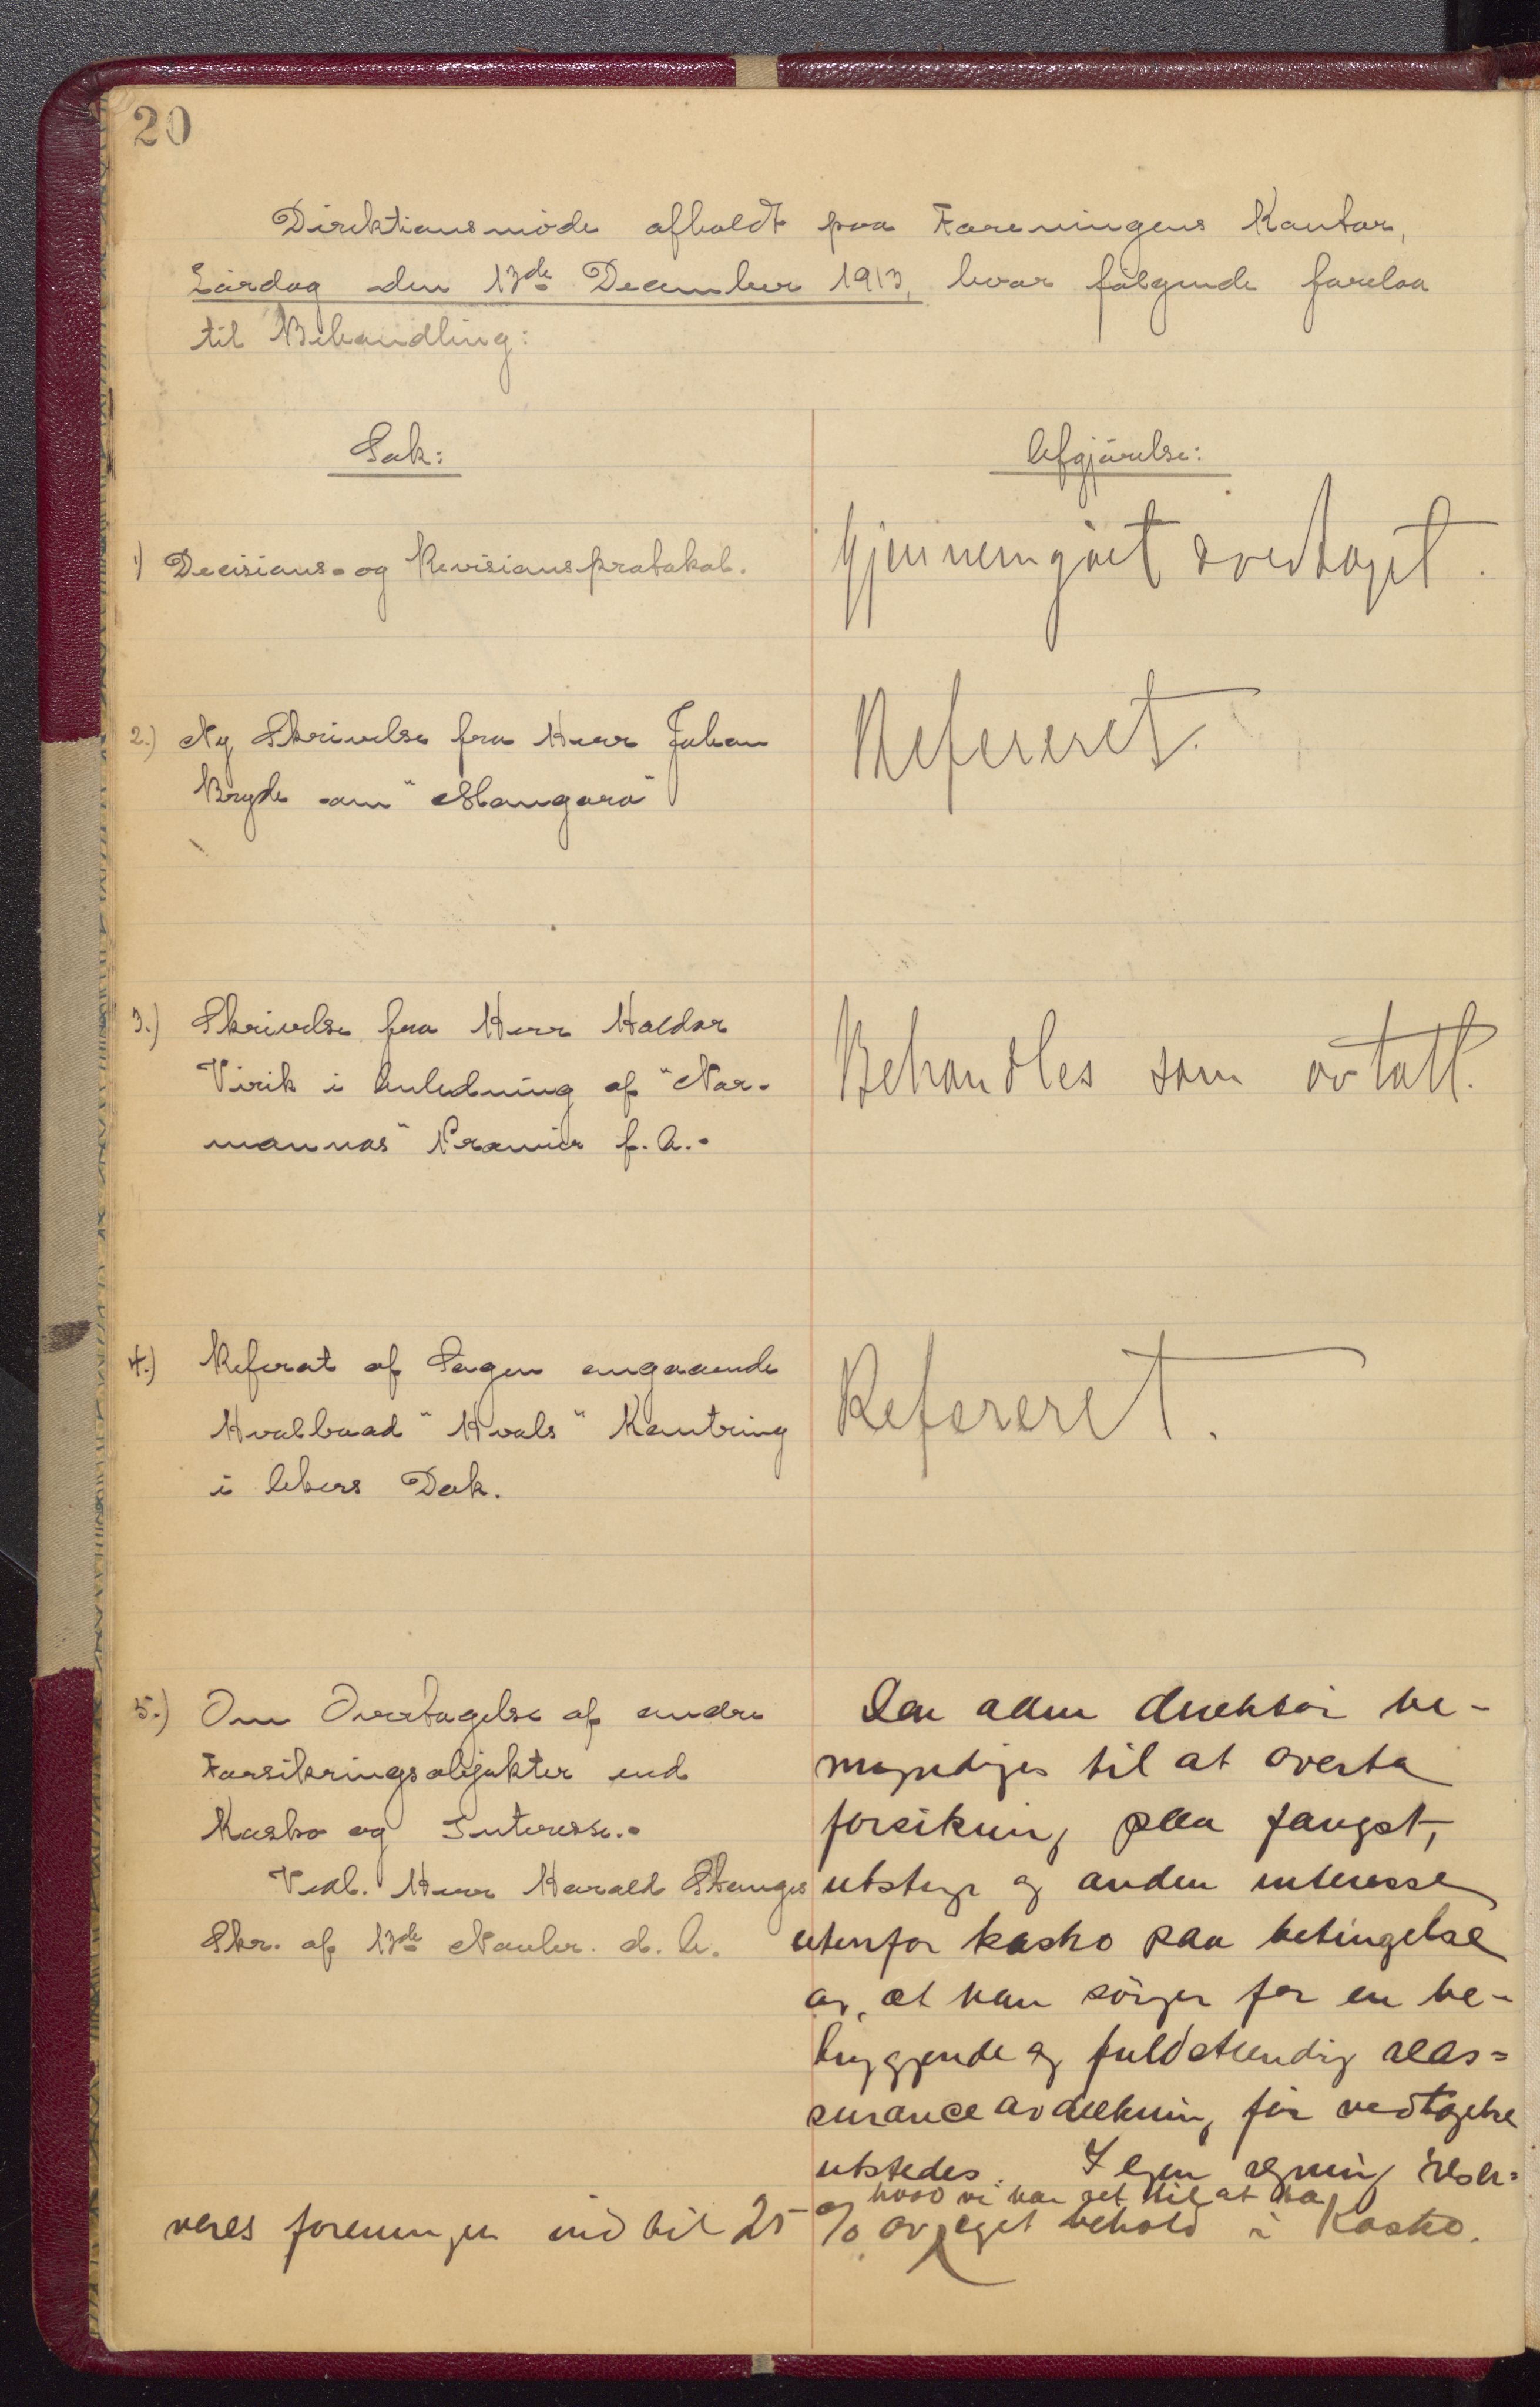 20
Direktionsmöde afholdt paa Foreningens Kontor,
Lördag den 13de December 1913, hvor fölgende forelaa
til Behandling:
Sak:
Afgjörelse:
1) Decisions- og Revisionsprotokol.
Gjennemgået & vedtaget.
2.) Ny Skrivelse fra Herr Johan
Bryde om "Mangara"
Refereret.
3.) Skrivelse fra Herr Haldor
Virik i Anledning af "Nor-
mannas" Præmier f. A.-
Behandles som avtalt.
4.) Referat af Sagen angaaende
Hvalbaad "Hvals" Kantring
i Akers Dok.
Refereret.
5.) Om Overtagelse af andre
Forsikringsobjekter end
Kasko og Interesse.-
Vedl. Herr Harald Stanges
Skr. af 13de Novbr. d. A.
Den adm direktör be-
myndiges til at overta
forsikring paa fangst,
utstyr og anden interesse
utenfor kasko paa betingelse
av, at han sörger for en be-
tryggende og fuldstændig reas=
surance avdekning, för vedtagelse
utstedes. I egen regning reser=
hvad vi har set til at ha
veres foreningen ind til 25 % av eget behold i Kasko.